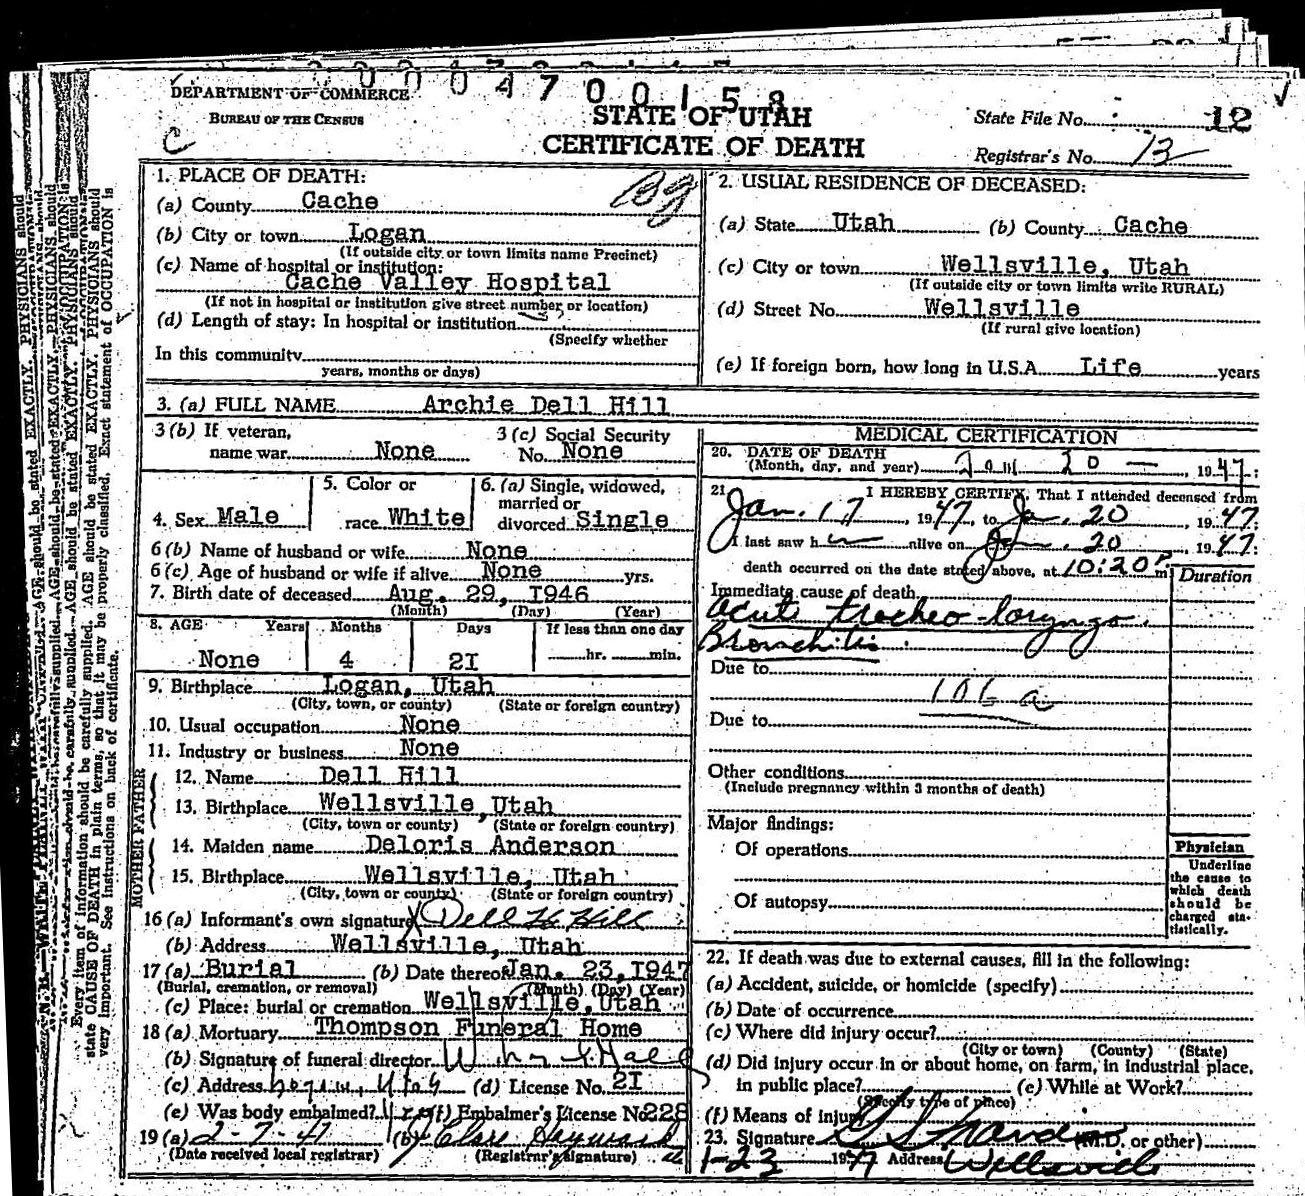 DEPARTMENT OF COMMERCE
BUREAU OF THE CENSUS
C
0 0 4 7 0 0 1 5 8
STATE OF UTAH
CERTIFICATE OF DEATH
State File No. 12
Registrar's No. 13
1. PLACE OF DEATH:
(a) County Cache
(b) City or town Logan
(If outside city or town limits name Precinct)
(c) Name of hospital or institution:
Cache Valley Hospital
(If not in hospital or institution give street number, or location)
(d) Length of stay: In hospital or institution
(Specify whether
In this community
years, months or days)
2. USUAL RESIDENCE OF DECEASED:
(a) State Utah (b) County Cache
(c) City or town Wellsville, Utah
(If outside city or town limits write RURAL)
(d) Street No. Wellsville
(If rural give location)
(e) If foreign born, how long in U.S.A. Life years
3. (a) FULL NAME Archie Dell Hill
3 (b) If veteran, name war None
3 (c) Social Security No. None
4. Sex Male
5. Color or race White
6. (a) Single, widowed, married or divorced Single
6 (b) Name of husband or wife None
6 (c) Age of husband or wife if alive None yrs.
7. Birth date of deceased Aug. 29, I946
(Month) (Day) (Year)
8. AGE Years Months Days If less than one day
None 4 2I hr. min.
9. Birthplace Logan, Utah
(City, town, or county) (State or foreign country)
10. Usual occupation None
11. Industry or business None
FATHER
12. Name Dell Hill
13. Birthplace Wellsville, Utah
(City, town or county) (State or foreign country)
MOTHER
14. Maiden name Deloris Anderson
15. Birthplace Wellsville, Utah
(City, town or county) (State or foreign country)
16 (a) Informant's own signature X Dell H Hill
(b) Address Wellsville, Utah
17 (a) Burial (b) Date thereof Jan. 23, I947
(Burial, cremation, or removal) (Month) (Day) (Year)
(c) Place: burial or cremation Wellsville, Utah
18 (a) Mortuary Thompson Funeral Home
(b) Signature of funeral director Hall
(c) Address Utah (d) License No. 2I
(e) Was body embalmed? (f) Embalmer's License No. 228
19 (a) 2-7-47 (b) Clare Hayward
(Date received local registrar) (Registrar's signature)
MEDICAL CERTIFICATION
20. DATE OF DEATH
(Month, day, and year) Jan 20 — , 1947:
21. I HEREBY CERTIFY, That I attended deceased from
Jan. 17, 1947, to Ja. 20, 1947:
I last saw h alive on Jan. 20, 1947:
death occurred on the date stated above, at 10:20 P. m
Duration
Immediate cause of death
Acute tracheo-laryngo
Bronchitis
Due to
106 a
Due to
Other conditions
(Include pregnancy within 3 months of death)
Major findings:
Of operations
Of autopsy
Physician
Underline the cause to which death should be charged statistically.
22. If death was due to external causes, fill in the following:
(a) Accident, suicide, or homicide (specify)
(b) Date of occurrence
(c) Where did injury occur?
(City or town) (County) (State)
(d) Did injury occur in or about home, on farm, in industrial place,
in public place? (e) While at Work?
(Specify type of place)
(f) Means of injury
23. Signature (M.D. or other)
1-23 1947 Address Wellsville
Every item of information should be carefully supplied. AGE should be stated EXACTLY. PHYSICIANS should
state CAUSE OF DEATH in plain terms, so that it may be properly classified. Exact statement of OCCUPATION is
very important. See instructions on back of certificate.